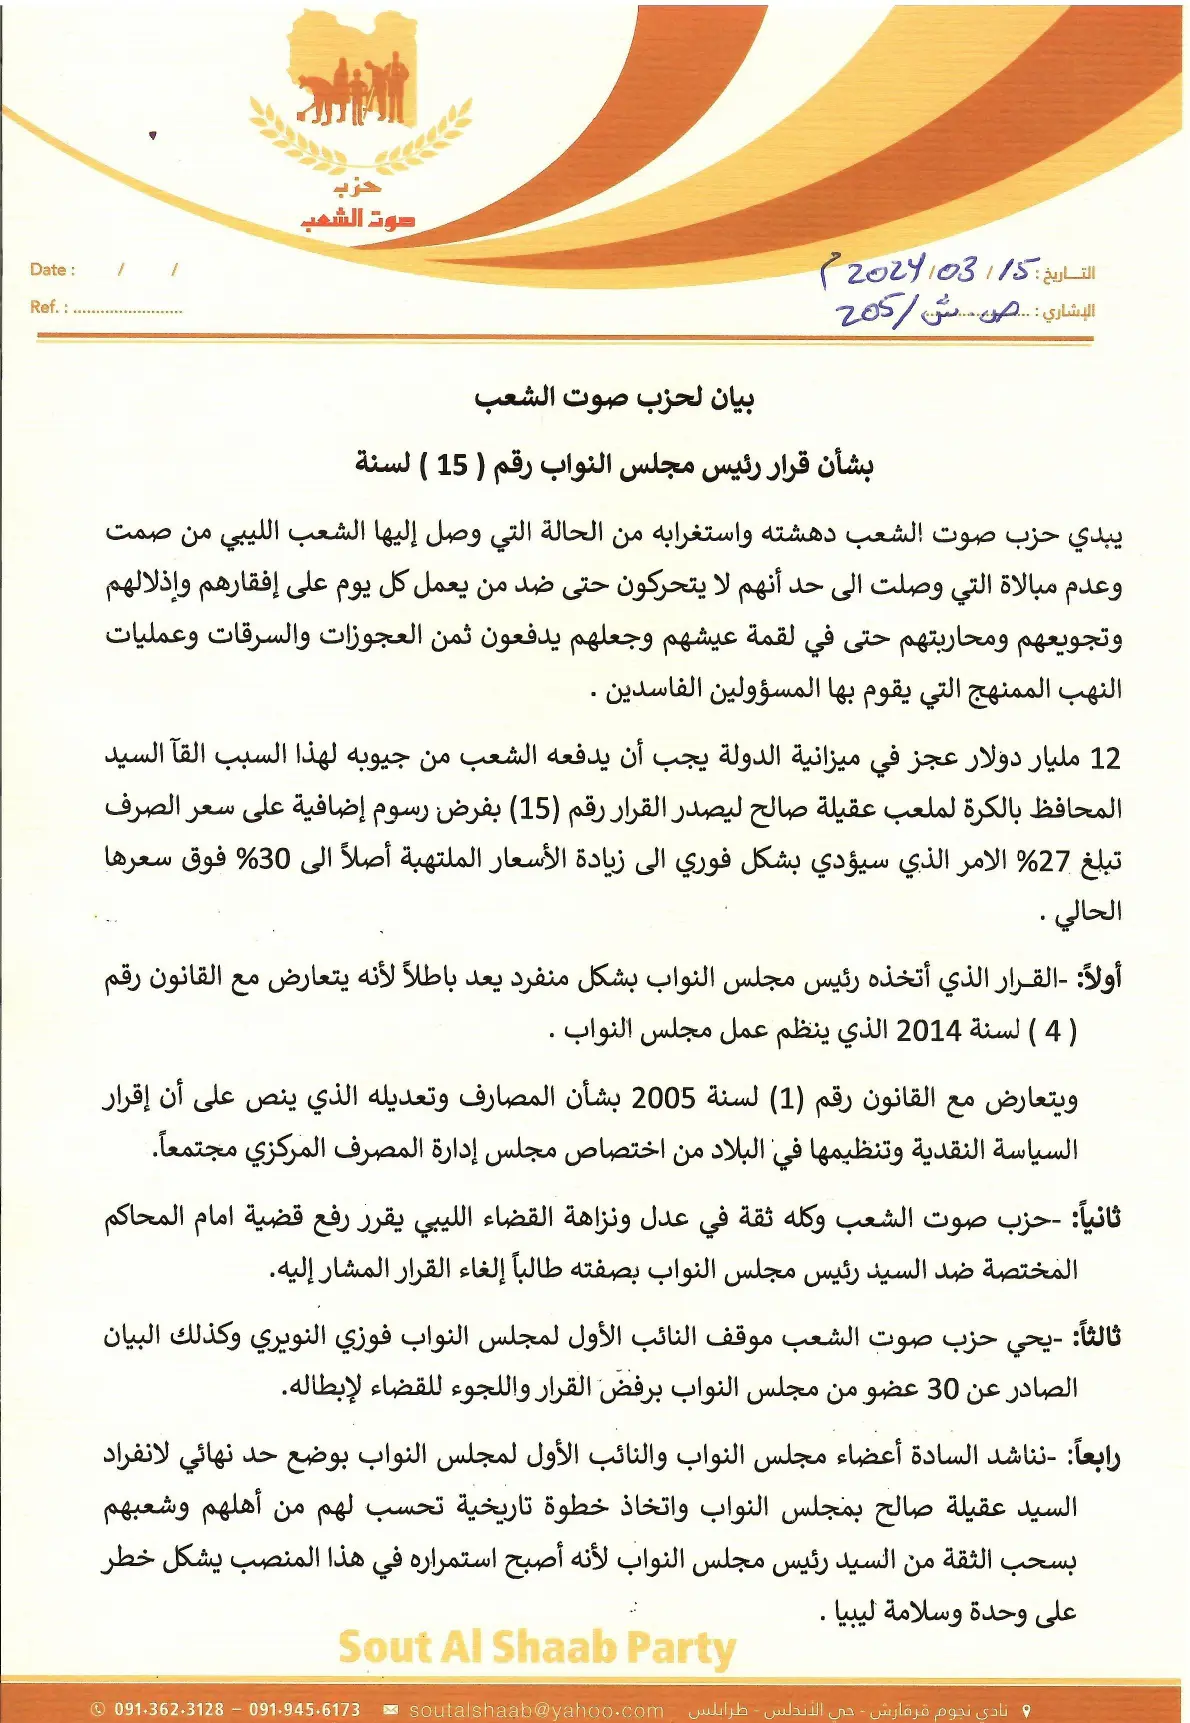 حزب
صوت الشعب
Date : / /
Ref. : ........................
التــاريخ : 15 / 03 / 2024 م
الإشاري : ص. ش / 205
بيان لحزب صوت الشعب
بشأن قرار رئيس مجلس النواب رقم ( 15 ) لسنة
يبدي حزب صوت الشعب دهشته واستغرابه من الحالة التي وصل إليها الشعب الليبي من صمت
وعدم مبالاة التي وصلت الى حد أنهم لا يتحركون حتى ضد من يعمل كل يوم على إفقارهم وإذلالهم
وتجويعهم ومحاربتهم حتى في لقمة عيشهم وجعلهم يدفعون ثمن العجوزات والسرقات وعمليات
النهب الممنهج التي يقوم بها المسؤولين الفاسدين .
12 مليار دولار عجز في ميزانية الدولة يجب أن يدفعه الشعب من جيوبه لهذا السبب القآ السيد
المحافظ بالكرة لملعب عقيلة صالح ليصدر القرار رقم (15) بفرض رسوم إضافية على سعر الصرف
تبلغ 27% الامر الذي سيؤدي بشكل فوري الى زيادة الأسعار الملتهبة أصلاً الى 30% فوق سعرها
الحالي .
أولاً: -القـرار الذي أتخذه رئيس مجلس النواب بشكل منفرد يعد باطلاً لأنه يتعارض مع القانون رقم
( 4 ) لسنة 2014 الذي ينظم عمل مجلس النواب .
ويتعارض مع القانون رقم (1) لسنة 2005 بشأن المصارف وتعديله الذي ينص على أن إقرار
السياسة النقدية وتنظيمها في البلاد من اختصاص مجلس إدارة المصرف المركزي مجتمعاً.
ثانياً: -حزب صوت الشعب وكله ثقة في عدل ونزاهة القضاء الليبي يقرر رفع قضية امام المحاكم
المختصة ضد السيد رئيس مجلس النواب بصفته طالباً إلغاء القرار المشار إليه.
ثالثاً: -يحي حزب صوت الشعب موقف النائب الأول لمجلس النواب فوزي النويري وكذلك البيان
الصادر عن 30 عضو من مجلس النواب برفض القرار واللجوء للقضاء لإبطاله.
رابعاً: -نناشد السادة أعضاء مجلس النواب والنائب الأول لمجلس النواب بوضع حد نهائي لانفراد
السيد عقيلة صالح بمجلس النواب واتخاذ خطوة تاريخية تحسب لهم من أهلهم وشعبهم
بسحب الثقة من السيد رئيس مجلس النواب لأنه أصبح استمراره في هذا المنصب يشكل خطر
على وحدة وسلامة ليبيا .
Sout Al Shaab Party
091.362.3128 – 091.945.6173 soutalshaab@yahoo.com نادي نجوم قرقارش - حي الأندلس - طرابلس